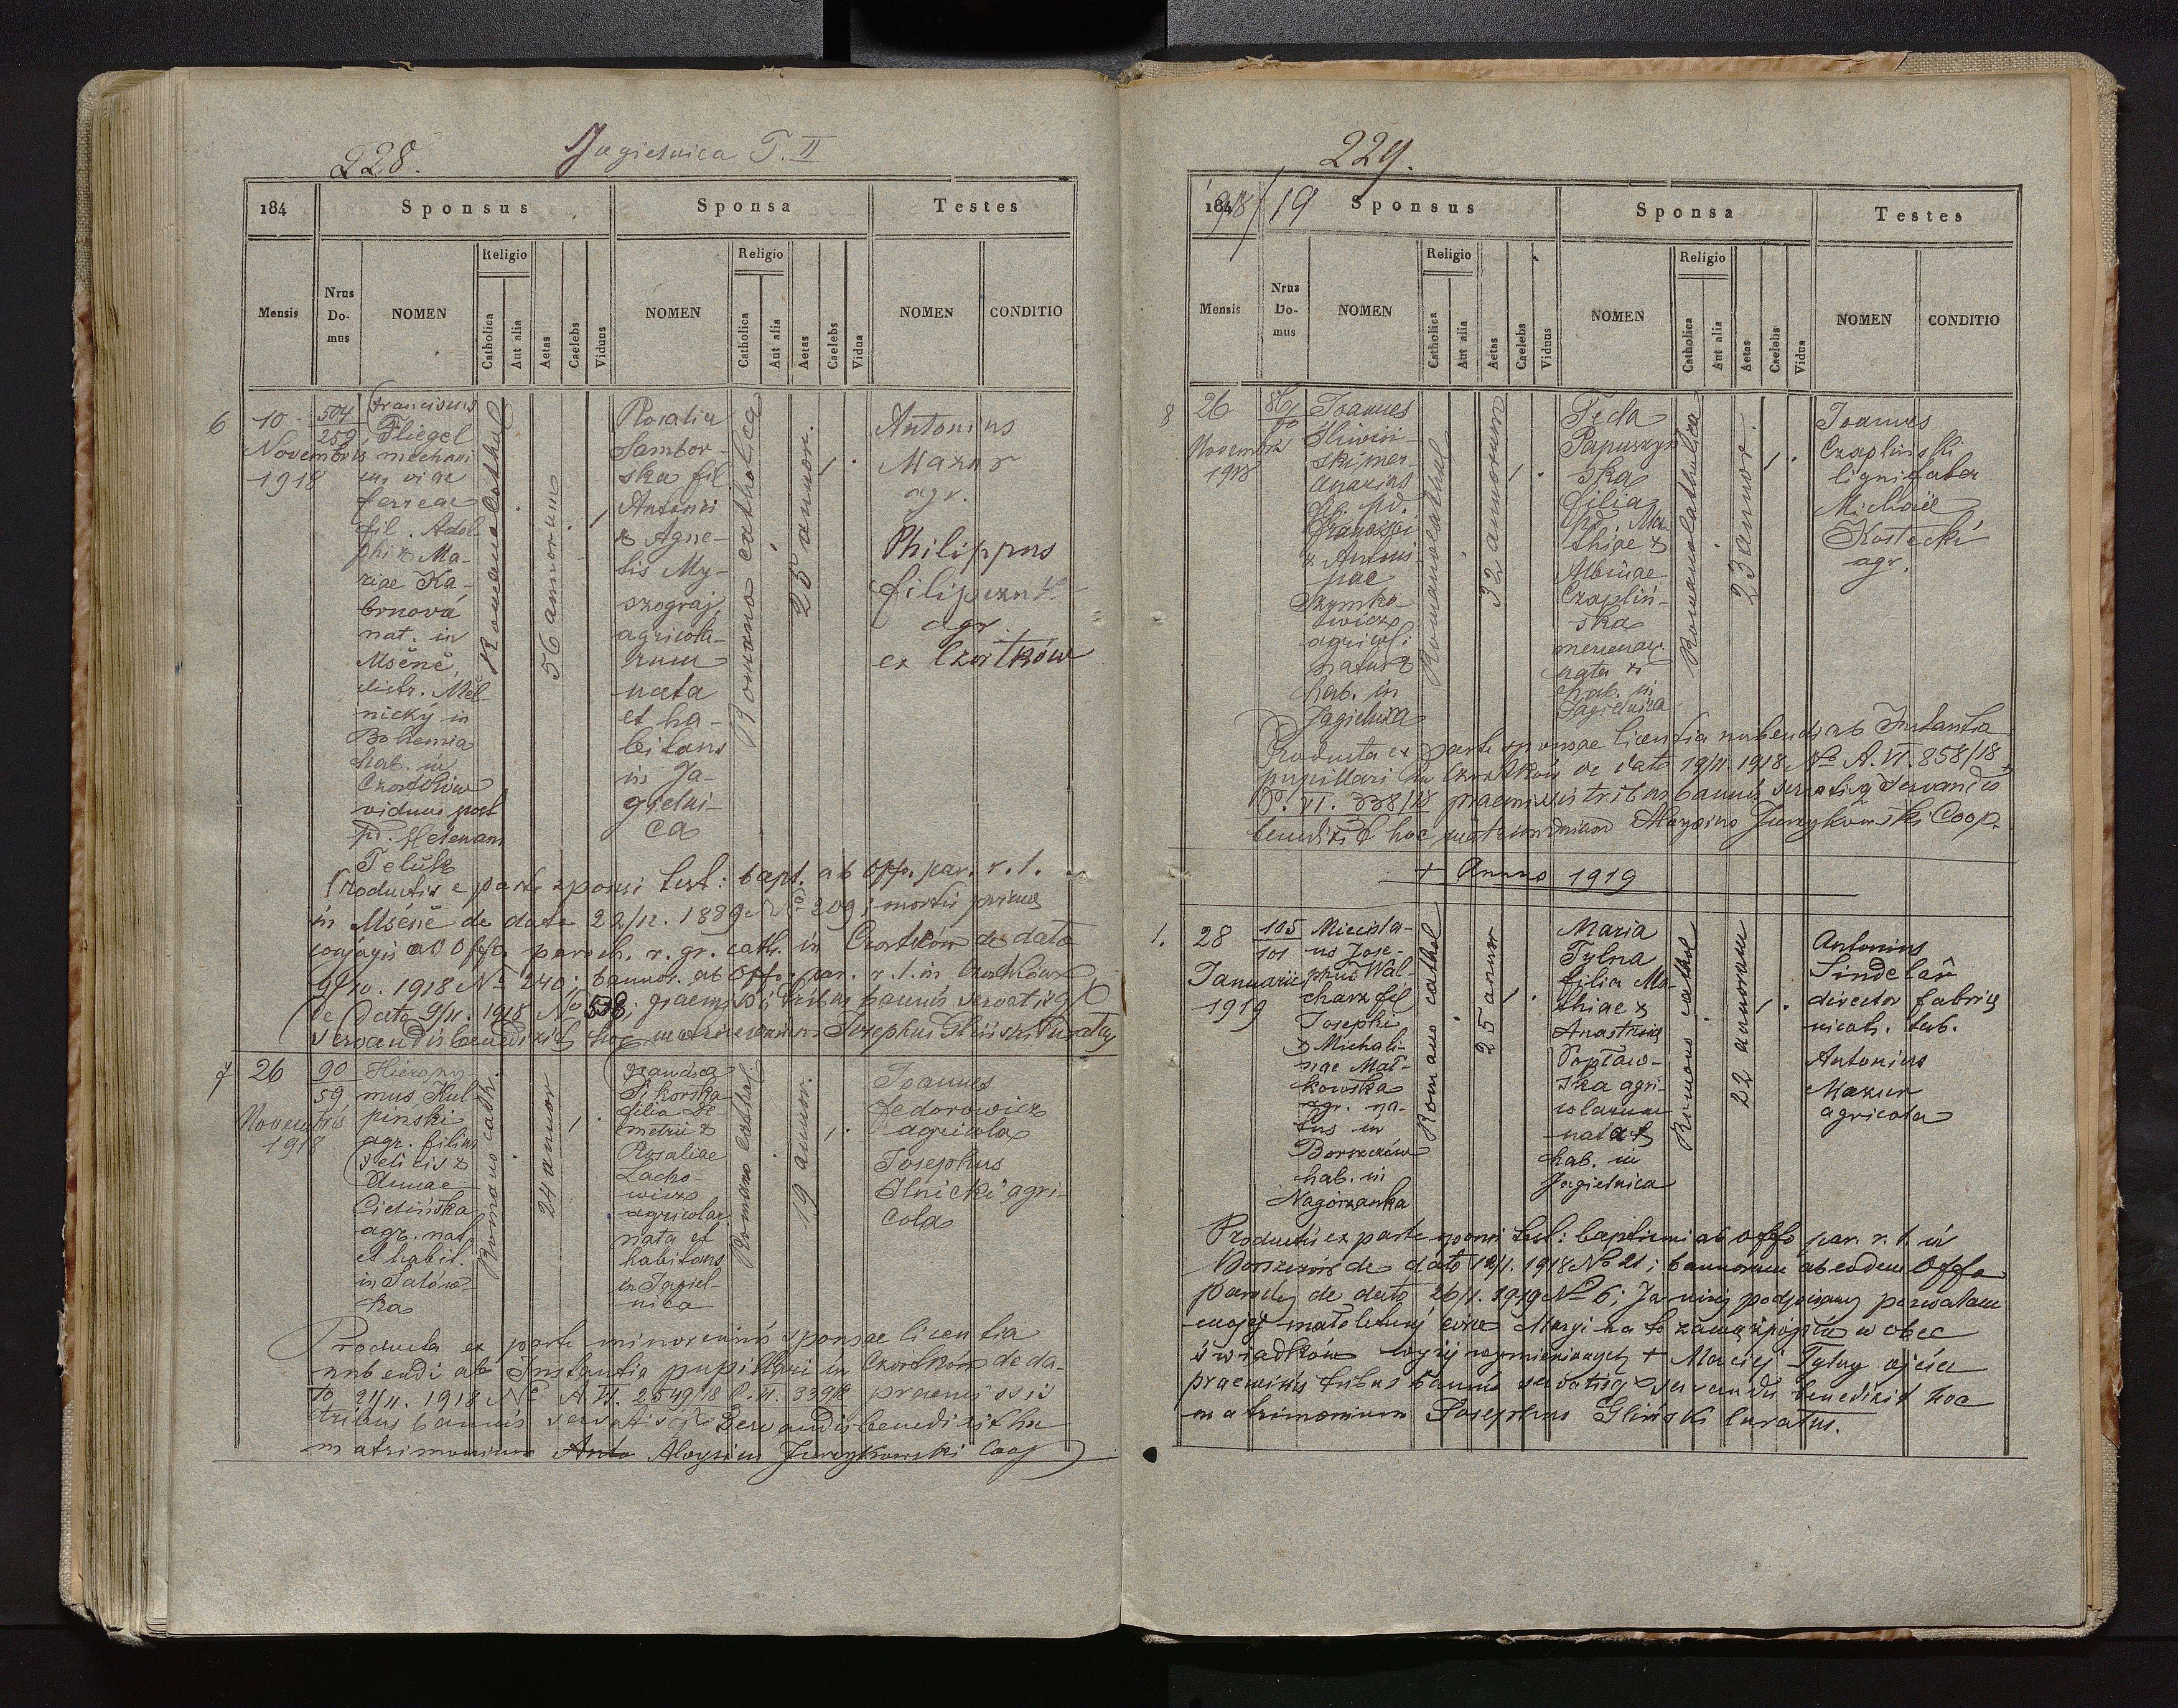 228.
Jagielnica T. II
184
Sponsus
Sponsa
Testes
Mensis
Nrus Do-mus
NOMEN
Religio
Catholica
Aut alia
Aetas
Caelebs
Viduus
NOMEN
Religio
Catholica
Aut alia
Aetas
Caelebs
Vidua
NOMEN
CONDITIO
6
10
Novembris
1918
504
259
Franciscus
Fliegel
mechani
cus viae
ferreae
fil. Adol-
phi & Ma-
riae Ha-
brnová
nat. in
Mšéně,
distr. Měl-
nický in
Bohemia
hab. in
Czortków
viduus post
pd. Helenam
Romano cathol
56 annorum
Rosalia
Sambor-
ska fil
Antonii
& Agne-
tis My-
szograj
agricola-
rum
nata
et ha-
bitans
in Ja-
gielni-
ca
Romano catholica
25 annor.
Antonius
Mazur
agr.
Philippus
agr.
ex Czortków
Productis e parte sponsi test: bapt. ab Offo. par. r. l.
in Mšéně de dato 22/12. 1889 No 209; mortis primae
conjugis ab Offo. paroch. r. gr. cath. in Czortków de dato
9/10. 1918 No 240; bannor. ab Offo. par. r. l. in Czortków
de dato 9/11. 1918 No 538; praemissis tribus bannis servatisq
servandis benedixit hoc matrimonium Josephus Gliński Curatus
7
26
Novembris
1918
90
59
Hierony-
mus Kul-
piński
agr. filius
Felicis &
Annae
Cielińska
agr. nat.
et habit.
in Salów-
ka
Romano cath.
24 annor
Francisca
Sikorska
filia De
metrii &
Rosaliae
Lacho-
wicz
agricolar
nata et
habitans
in Jagiel-
nica
Romano cathol
19 annor.
Joannes
Fedorowicz
agricola
Josephus
Ilnicki agri-
cola
Producta ex parte minorennis sponsae licentia
nubendi ab Instantia pupillari in Czortków de da-
to 21/11. 1918 No A VI. 2549/18 P. VI. 339/18 praemissis
tribus bannis servatisq servandis benedixit hoc
matrimonium Anto Aloysius Jurzykowski Coop
229.
1918/19
Sponsus
Sponsa
Testes
Mensis
Nrus Do-mus
NOMEN
Religio
Catholica
Aut alia
Aetas
Caelebs
Viduus
NOMEN
Religio
Catholica
Aut alia
Aetas
Caelebs
Vidua
NOMEN
CONDITIO
8
26
Novembris
1918
Joannes
Śliwiń-
ski mer-
cenarius
fil. pd.
& Antoni-
nae
Szymko-
wicz
agricol:
natus &
hab. in
Jagielnica
Romano cathol
32 annorum
Tecla
Papuszyń
ska
filia
pd. Ma-
thiae &
Albinae
Czapliń-
ska
mercenar.
nata &
hab. in
Jagielnica
Romano catholica
23 annor.
Joannes
Czapliński
lignifaber
Michael
Kostecki
agr.
Producta ex parte sponsae licentia nubendi ab Instantia
pupillari in Czortków de dato 19/11. 1918 No A. VI. 858/18
P. VI. 338/18 praemissis tribus bannis servatisq servandis
benedixit hoc matrimonium Aloysius Jurzykowski Coop.
+ Anno 1919
1.
28
Januarii
1919
105
101
Miecisla-
us Jose-
phus Wal-
charz fil
Josephi
& Michali-
nae Mał-
kowska
agr. na-
tus in
Borszczów
hab. in
Nagórzanka
Romano cathol
25 annor
Maria
Tylna
filia Ma-
thiae &
Anastasiae
Popław-
ska agri-
colarum
nata &
hab. in
Jagielnica
Romano cathol
22 annorum
Antonius
Sindelař
director fabricae
nicot. tab.
Antonius
Mazur
agricola
Productis ex parte sponsi test: baptismi ab Offo par. r. l. in
Borszczów de dato 12/1. 1918 No 21; bannorum ab eodem Offo
paroch. de dato 26/1. 1919 No 6; Ja niżej podpisany pozwalam
mojej małoletniej córce Maryi na to zamążpójście w obec
świadków wyżej wymienionych + Maciej Tylny ojciec
praemissis tribus bannis servatisq servandis benedixit hoc
matrimonium Josephus Gliński Curatus.